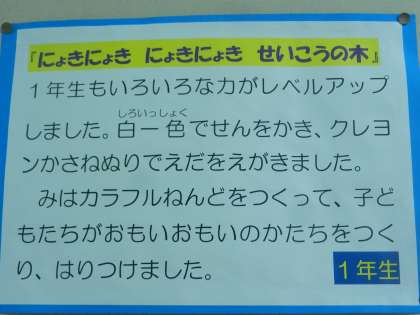 『にょきにょき　にょきにょき　せいこうの木』
１年生もいろいろな力がレベルアップ
しました。白一色でせんをかき、クレヨ
しろいっしょく
ンかさねぬりでえだをえがきました。
　みはカラフルねんどをつくって、子ど
もたちがおもいおもいのかたちをつく
り、はりつけました。
１年生